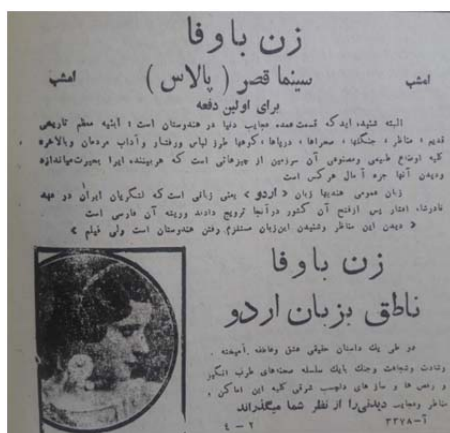 زن باوفا
امشب سینما قصر ( پالاس ) امشب
برای اولین دفعه
البته شنیده اید که قسمت عمده عجایب دنیا در هندوستان است ؛ ابنیه معظم تاریخی
قدیم ، مناظر ، جنگلها ، صحراها ، دریاها ، کوهها طرز لباس ورفتار وآداب مردمان وبالاخره
کلیه اوضاع طبیعی ومصنوعی آن سرزمین از چیزهائی است که هربیننده ایرا بحیرت میاندازد
ودیدن آنها جزء آمال هرکس است
زبان عمومی هندیها زبان « اردو » یعنی زبانی است که لشگریان ایران در عهد
نادرشاه افشار پس ازفتح آن کشور درآنجا ترویج دادند وریشه آن فارسی است
« دیدن این مناظر وشنیدن این زبان مستلزم رفتن هندوستان است ولی فیلم »
زن باوفا
ناطق بزبان اردو
در طی یك داستان حقیقی عشق وعاطفه آمیخته .
وشهامت وشجاعت وجنك بایك سلسله صحنه‌های طرب انگیز
و رقص ها و ساز های دلچسب شرقی کلیه این اماکن ،
مناظر وعجایب دیدنی را از نظر شما میگذراند
آ-۳۳۷۸ ۲ - ٤